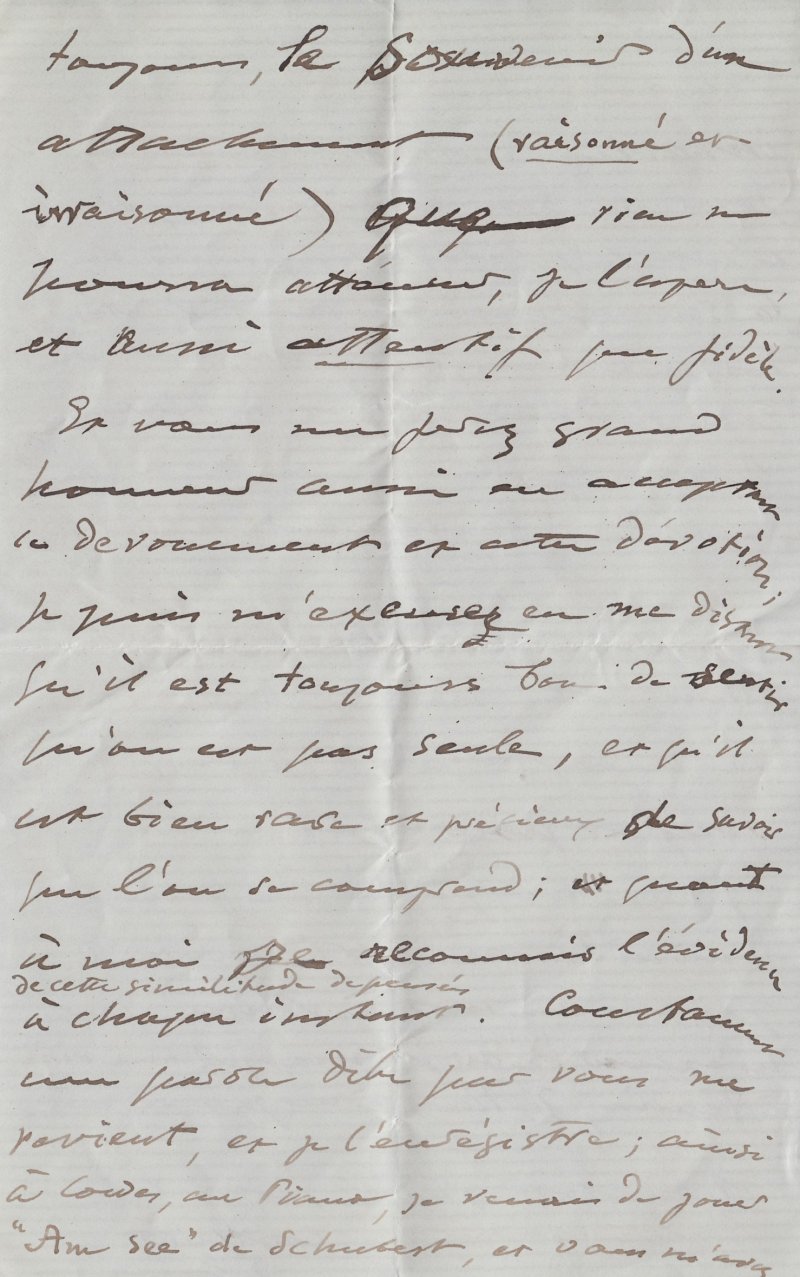 toujours, le souvenir d'un
attachement (raisonné et
irraisonné) que rien ne
pourra atténuer, je l'espère,
et aussi attentif que fidèle.
Et vous me ferez grand
honneur aussi en acceptant
ce dévouement et cette dévotion;
je puis m'excuser en me disant
qu'il est toujours bon de sentir
qu'on est pas seule, et qu'il
est bien rare et précieux de savoir
que l'on se comprend; et quant
à moi je reconnais l'évidence
de cette similitude de pensées
à chaque instant. Constamment
une parole dite par vous me
revient, et je l'enrégistre; ainsi
à Cowes, au Piano, je venais de jouer
"Am See" de Schubert, et vous m'avez